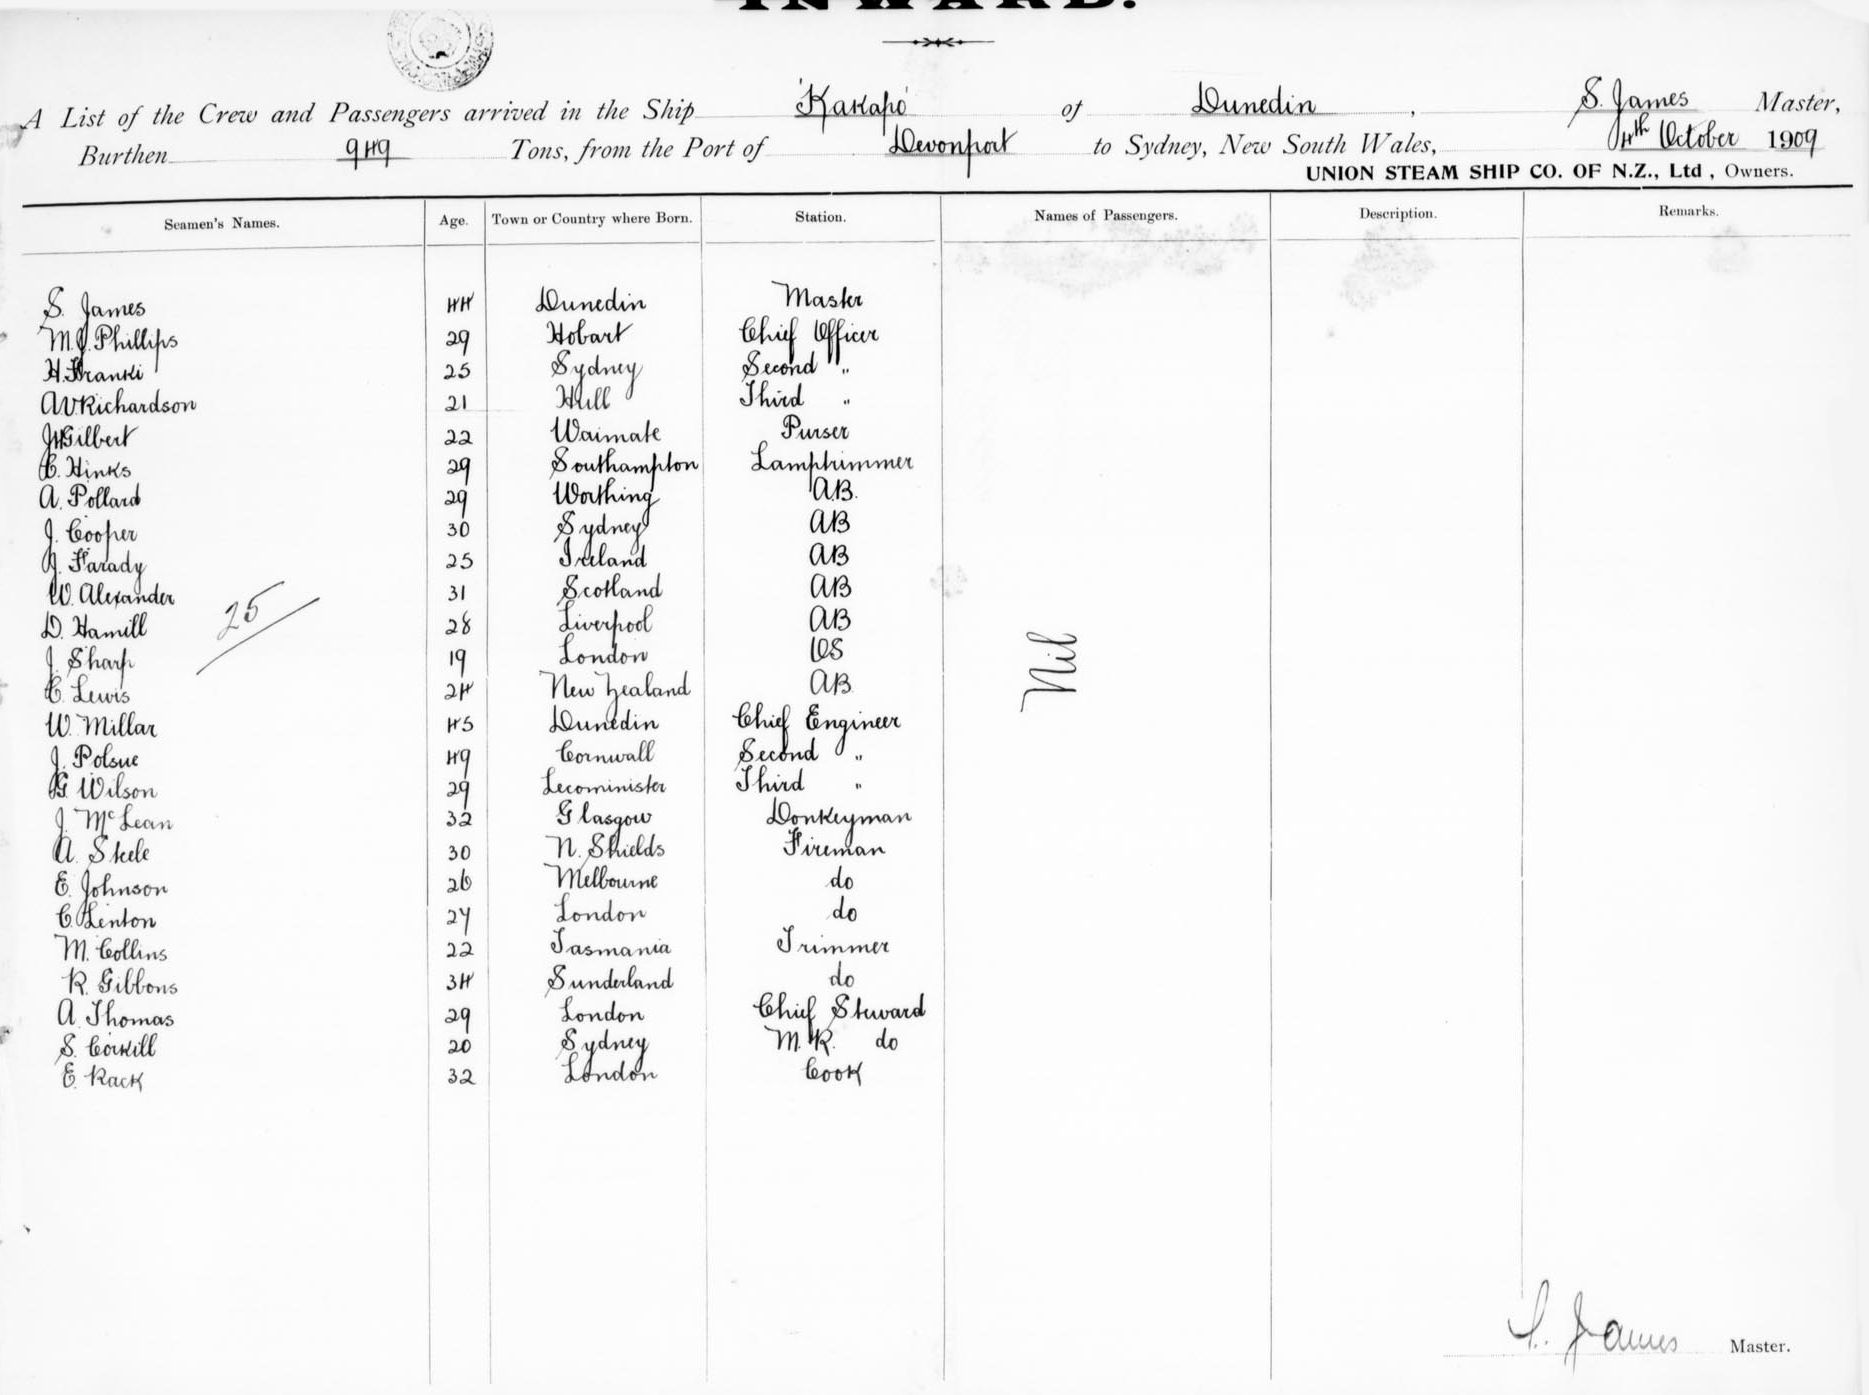 INWARD.
A List of the Crew and Passengers arrived in the Ship 'Kakapo' of Dunedin, S. James Master,
Burthen 949 Tons, from the Port of Devonport to Sydney, New South Wales, 4th October 1909
UNION STEAM SHIP CO. OF N.Z., Ltd, Owners.
Seamen's Names. Age. Town or Country where Born. Station. Names of Passengers. Description. Remarks.
S. James 44 Dunedin Master
M.J. Phillips 29 Hobart Chief Officer
H. Franki 25 Sydney Second "
A V Richardson 21 Hull Third "
J H Gilbert 22 Waimate Purser
C. Hinks 29 Southampton Lamptrimmer
A. Pollard 29 Worthing A.B.
J. Cooper 30 Sydney AB
J. Farady 25 Ireland AB
W. Alexander 31 Scotland AB
D. Hamill 28 Liverpool AB
25
J. Sharp 19 London OS
Nil
C. Lewis 24 New Zealand AB
W. Millar 45 Dunedin Chief Engineer
J. Polsue 49 Cornwall Second "
G. Wilson 29 Lecominister Third "
J. McLean 32 Glasgow Donkeyman
A. Steele 30 N. Shields Fireman
E. Johnson 26 Melbourne do
C. Lenton 27 London do
M. Collins 22 Tasmania Trimmer
R. Gibbons 34 Sunderland do
A. Thomas 29 London Chief Steward
S. Corkill 20 Sydney M.R. do
E. Rack 32 London Cook
S. James Master.